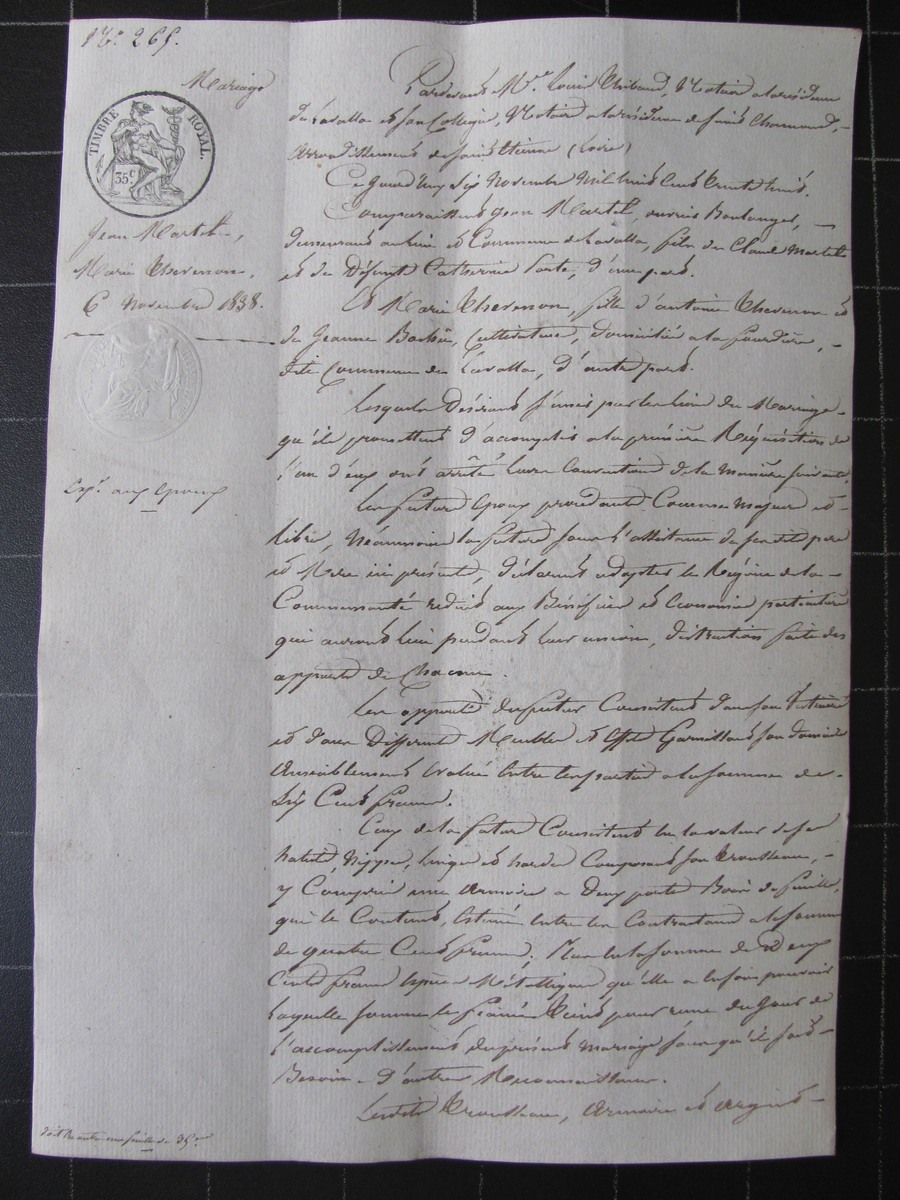 No. 265.
Mariage
TIMBRE ROYAL.
35 c
Jean Martel
Marie Thevenon,
6 Novembre 1838.
Expn. aux Epoux
Pardevant Me. Louis Thibaud, Notaire a la résidence
de Lavalla et son Collègue, Notaire a la résidence de Saint Chamond,
arrondissement de Saint Etienne (Loire)
Ce jourd'huy Six Novembre Mil huit Cent trente huit.
Comparaissent Jean Martel, ouvrier Boulanger,
demeurant au lieu et Commune de Lavalla, fils de Claude Martel
et de Défunte Catherine, d'une part.
Et Marie Thevenon, fille d'antoine Thevenon et
de Jeanne, Cultivateurs, domiciliée a la
dite Commune de Lavalla, d'autre part.
Lesquels Désirant s'unir par les liens du Mariage
qu'ils promettent d'accomplir a la première Réquisition de
l'un d'eux ont arrêté leurs Conventions de la Manière Suivante.
Les futurs Epoux procédant Comme Majeurs et
libres, Néanmoins la future sous l'assistance de ses dits père
et Mere ici présents, déclarent adopter le Régime de la
Communauté réduite aux Bénéfices et Economies particulières
qui auront lieu pendant leur union, distraction faite des
apports de Chacun.
Les apports du futur Consistent dans son Vestiaire
et dans Différents Meubles et Effets Garnissant son domicile
Ensemblement évalués Entre les parties a la somme de
Six Cents francs.
Ceux de la future Consistent En la valeur de ses
habits, Nippes, linges et hardes Composant son trousseau,
y Compris une armoire a Deux portes Bois de
qui le Contient, Estimé Entre les Contractants a la somme
de quatre Cents francs; Plus En la somme de Deux
Cents francs Espèces Métalliques qu'elle a En son pouvoir
Laquelle somme le fiancé tiens pour reçue du Jour de
l'accomplissement du présent Mariage sans qu'il soit
Besoin d'autre Reconnaissance.
Lesdits trousseau, armoire et argent